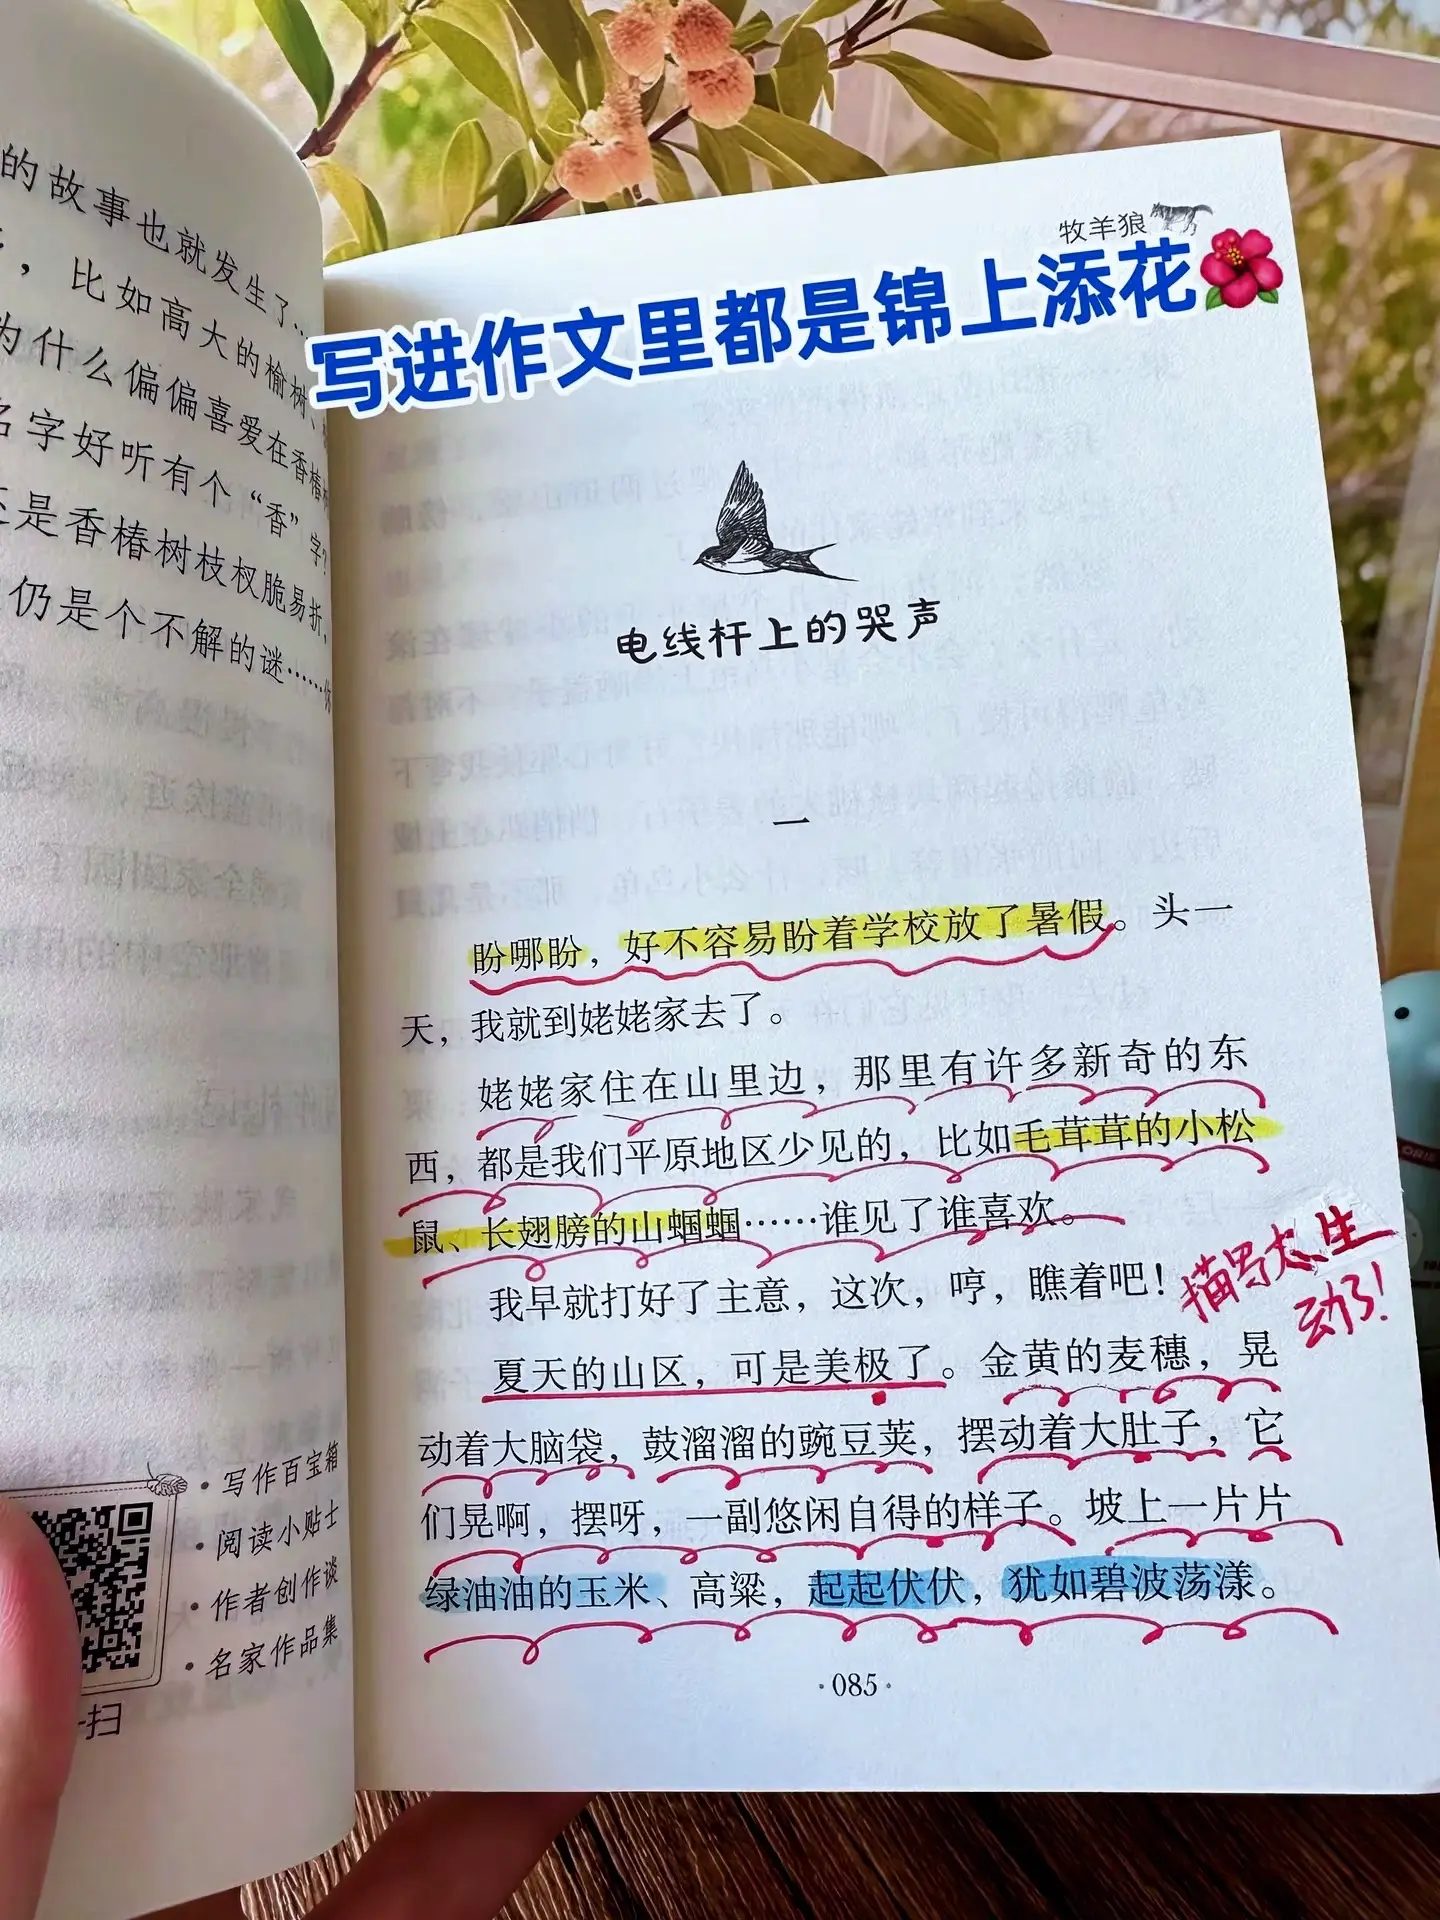 的故事也就发生了…
，比如高大的榆树、
为什么偏偏喜爱在香椿树
名字好听有个“香”字？
还是香椿树枝杈脆易折，
仍是个不解的谜……
·写作百宝箱
·阅读小贴士
·作者创作谈
·名家作品集
一扫
牧羊狼
写进作文里都是锦上添花🌺
电线杆上的哭声
一
盼哪盼，好不容易盼着学校放了暑假。头一
天，我就到姥姥家去了。
姥姥家住在山里边，那里有许多新奇的东
西，都是我们平原地区少见的，比如毛茸茸的小松
鼠、长翅膀的山蝈蝈……谁见了谁喜欢。
我早就打好了主意，这次，哼，瞧着吧！
描写太生
动了！
夏天的山区，可是美极了。金黄的麦穗，晃
动着大脑袋，鼓溜溜的豌豆荚，摆动着大肚子，它
们晃啊，摆呀，一副悠闲自得的样子。坡上一片片
绿油油的玉米、高粱，起起伏伏，犹如碧波荡漾。
·085·